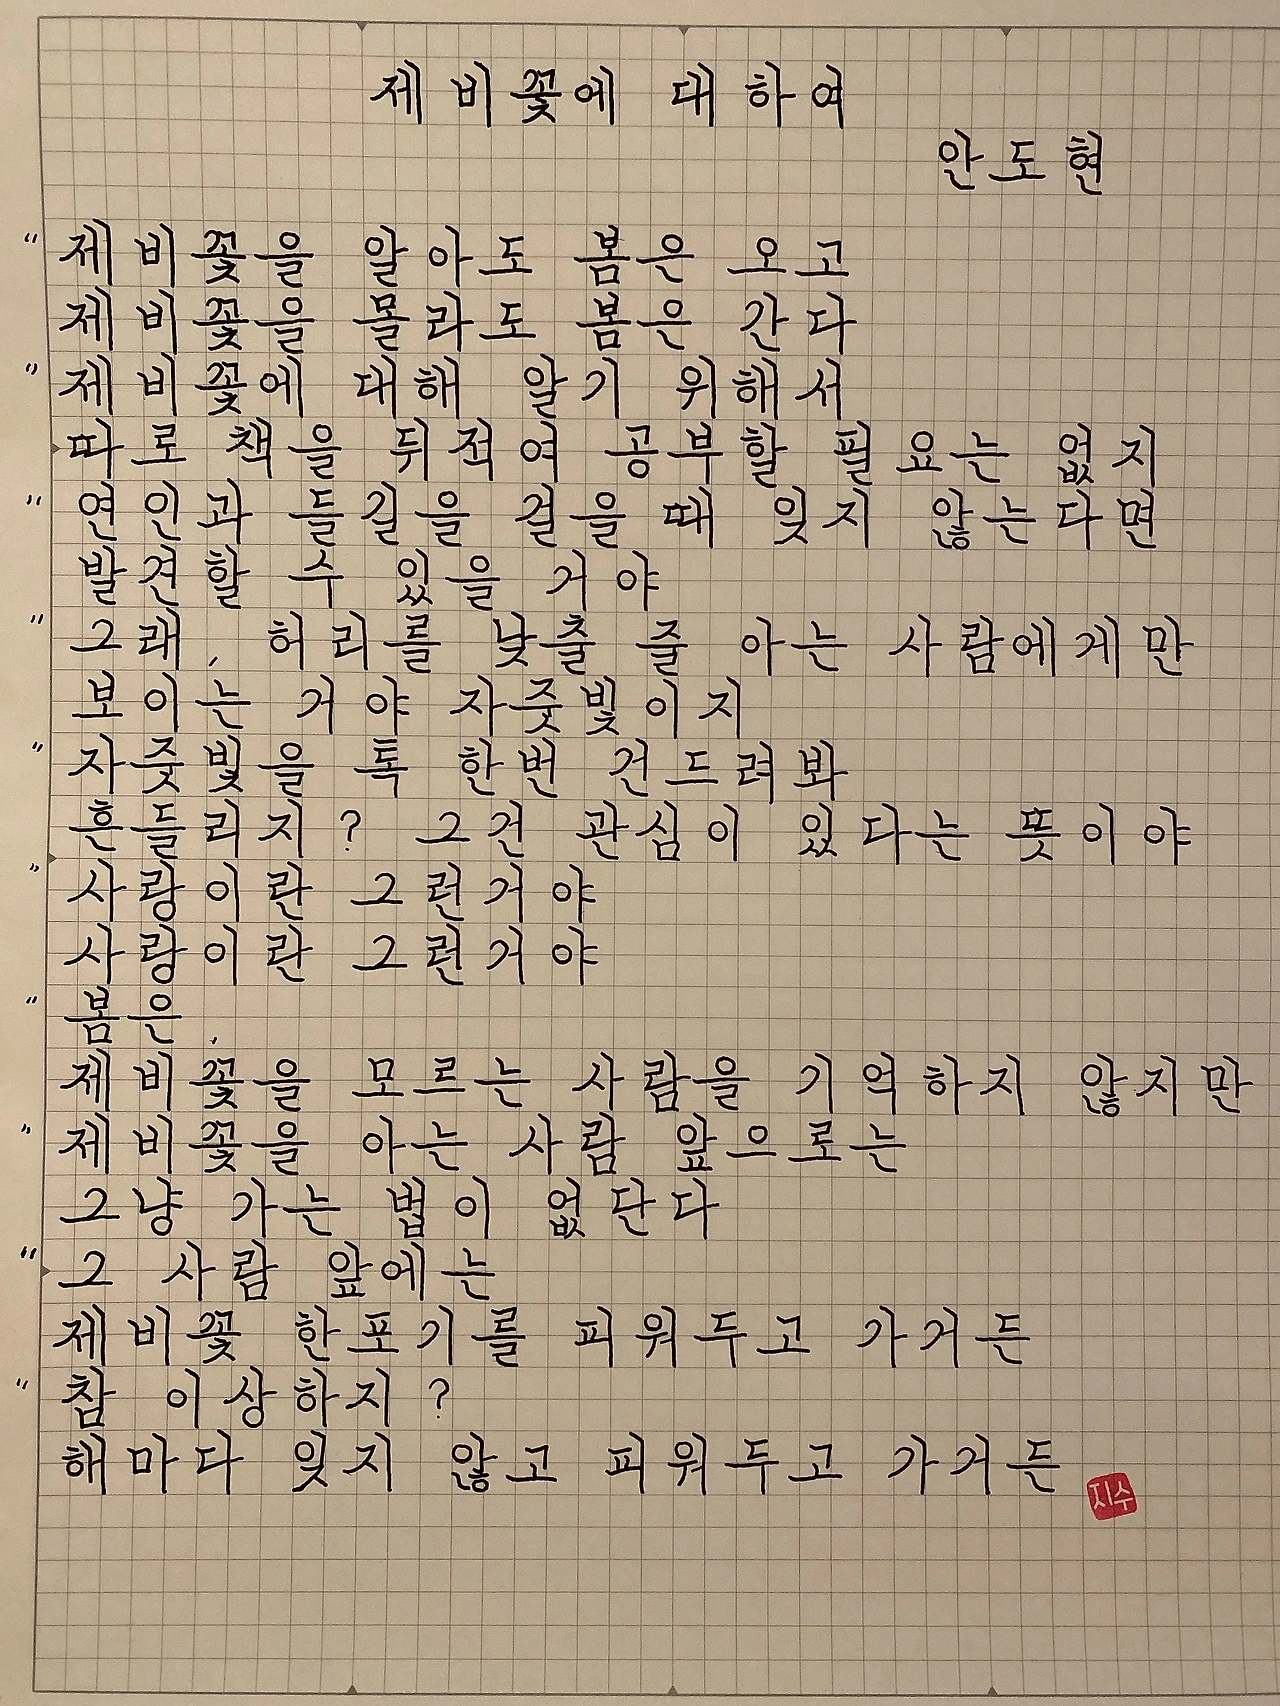 제비꽃에 대하여
안도현
" 제비꽃을 알아도 봄은 오고
제비꽃을 몰라도 봄은 간다
" 제비꽃에 대해 알기 위해서
따로 책을 뒤적여 공부할 필요는 없지
" 연인과 들길을 걸을 때 잊지 않는다면
발견할 수 있을 거야
" 그래, 허리를 낮출 줄 아는 사람에게만
보이는 거야 자줏빛이지
" 자줏빛을 톡 한번 건드려봐
흔들리지? 그건 관심이 있다는 뜻이야
" 사랑이란 그런거야
사랑이란 그런거야
" 봄은,
제비꽃을 모르는 사람을 기억하지 않지만
" 제비꽃을 아는 사람 앞으로는
그냥 가는 법이 없단다
" 그 사람 앞에는
제비꽃 한포기를 피워두고 가거든
" 참 이상하지?
해마다 잊지 않고 피워두고 가거든
지수